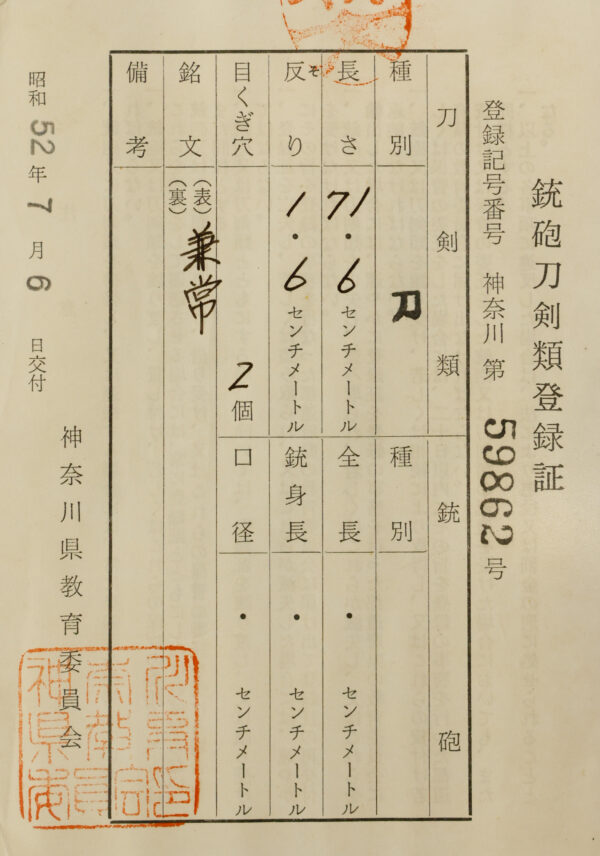 銃砲刀剣類登録証
登録記号番号 神奈川 第 59862 号
刀剣類
種別 刀
長さ 71.6 センチメートル
反り 1.6 センチメートル
そ
目くぎ穴 2 個
銘文 (表) 兼常
(裏)
備考
銃砲
種別
全長 ・ センチメートル
銃身長 ・ センチメートル
口径 ・ センチメートル
昭和 52 年 7 月 6 日交付
神奈川県教育委員会